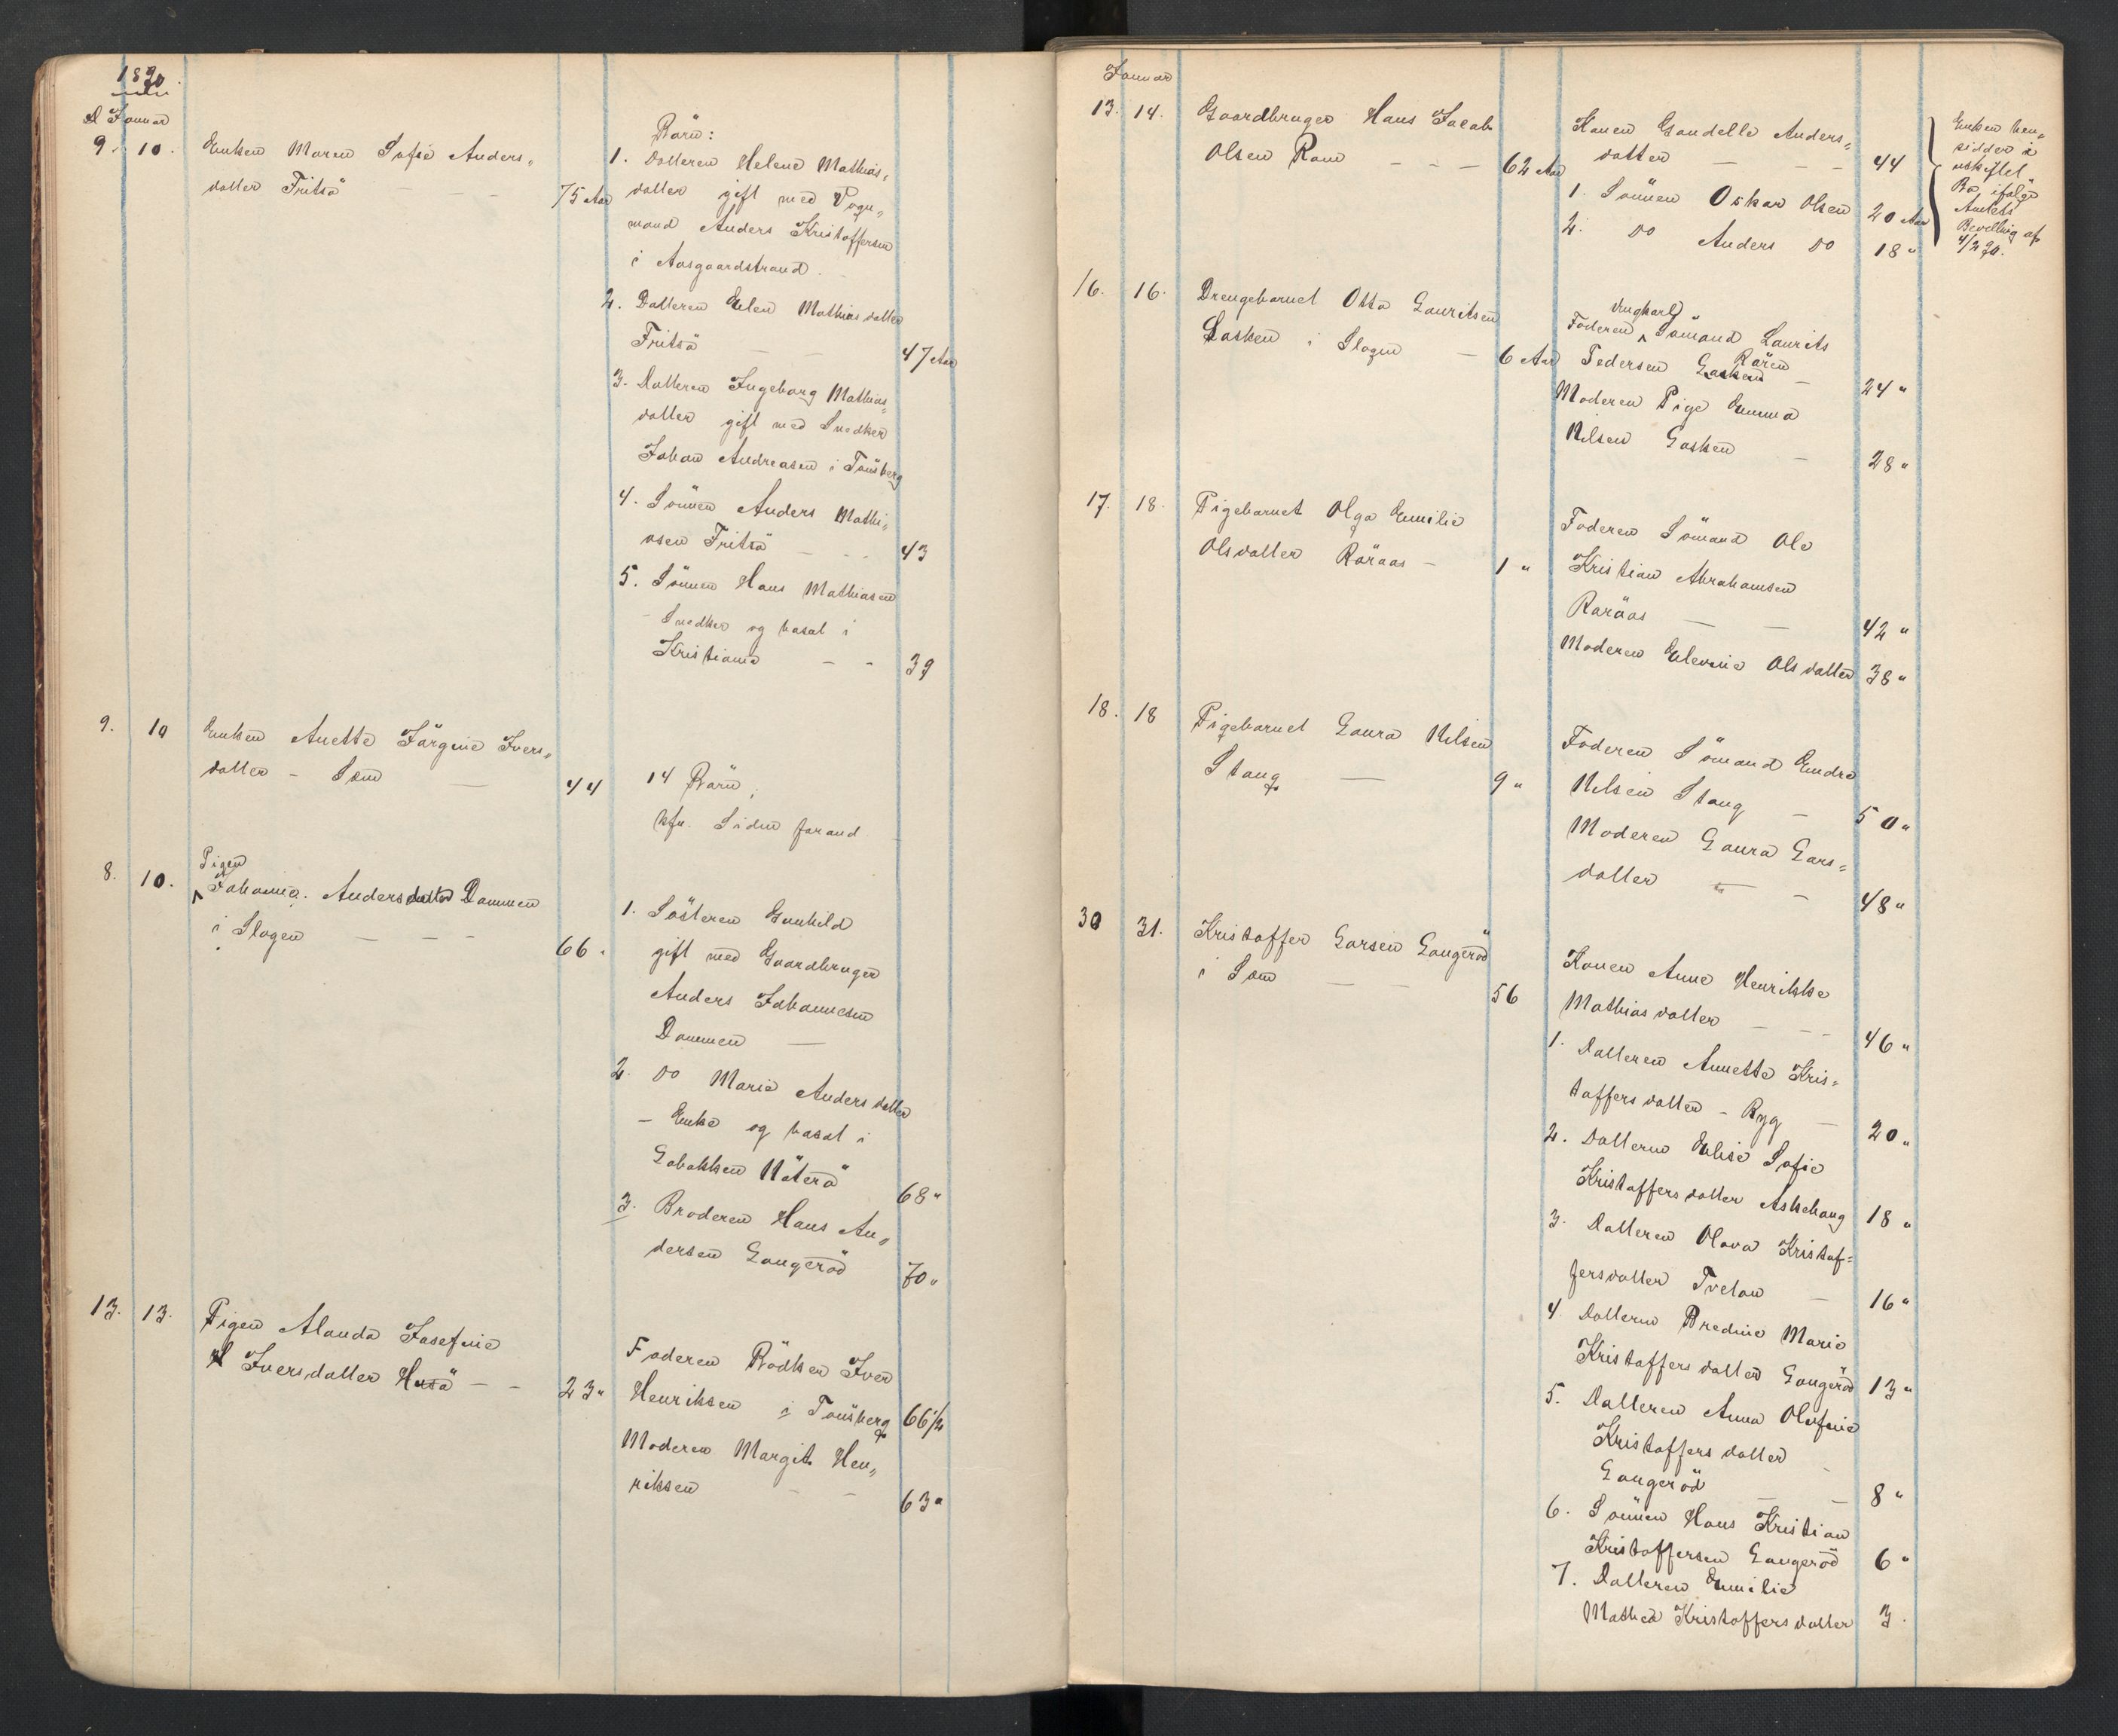 1890.
D Januar
9. 10. Enken Maren Sofie Anders„
datter Fritsö — — — 75 Aar
Børn:
1. Datteren Helene Mathias„
datter gift med Vogn„
mand Anders Kristoffersen
i Aasgaardstrand.
2. Datteren Elen Mathiasdatter
Fritsö — — 47 Aar
3. Datteren Ingeborg Mathias„
datter gift med Snedker
Johan Andreasen i Tönsberg
4. Sönnen Anders Mathi„
asen Fritsö — — — 43
5. Sönnen Hans Mathiasen
- Snedker og bosat i
Kristiania — — 39
9. 10 Enken Anette Jörgine Ivers„
datter - Sem — 44
14 Börn;
kfr. Siden foran
8. 10. Pigen
Johanna. Andersdatter Dammen
i Slagen — — — 66.
1. Sösteren Gunhild
gift med Gaardbruger
Anders Johannesen
Dammen —
2. Do Marie Andersdatter
- Enke og bosat i
Nöterö 68 "
3. Broderen Hans An„
dersen Gaugeröd 70 "
13. 13. Pigen Alanda Josefine
Iversdatter Husö — — 23 "
Faderen Rödker Iver
Henriksen i Tönsberg 66 1/2
Moderen Margit Hen„
riksen — — 63 "
Januar
13. 14. Gaardbruger Hans Jacob
Olsen Ram — — — 62 Aar
Konen Gundelle Anders„
datter — — — 44
1. Sönnen Oskar Olsen 20 Aar
2. Do Anders Do 18 "
Enken hen„
sidder i
uskiftet
Bo, ifølge
Amtets
Bevilling af
4/2 90.
16. 16. Drengebarnet Otto Lauritsen
Lasken i Slagen — 6 Aar
Ungkarl
Faderen Sömand Laurits
Rören
Pedersen Lasken — 24 "
Moderen Pige Emma
Nilsen Lasken — 28 "
17. 18. Pigebarnet Olga Emilie
Olsdatter Röraas — 1 "
Faderen Sömand Ole
Kristian Abrahamsen
Röraas — — 42 "
Moderen Elevine Olsdatter 38 "
18. 18 Pigebarnet Laura Nilsen
Stang — 9 "
Faderen Sömand Endre
Nilsen Stang — 50 "
Moderen Laura Lars„
datter — — 48 "
30 31. Kristoffer Larsen Gaugeröd
i Sem — — 56
Konen Anne Henrikke
Mathiasdatter — — — 46 "
1. Datteren Annette Kris„
toffersdatter - Ryg — 20 "
2. Datteren Elise Sofie
Kristoffersdatter Askehaug 18 "
3. Datteren Olava Kristof„
fersdatter Tveten — 16 "
4. Datteren Bredine Marie
Kristoffersdatter Gaugeröd 13 "
5. Datteren Anna Olufine
Kristoffersdatter
Gaugeröd — — 8 "
6. Sönnen Hans Kristian
Kristoffersen Gaugeröd 6 "
7. Datteren Emilie
Mathea Kristoffersdatter 3.